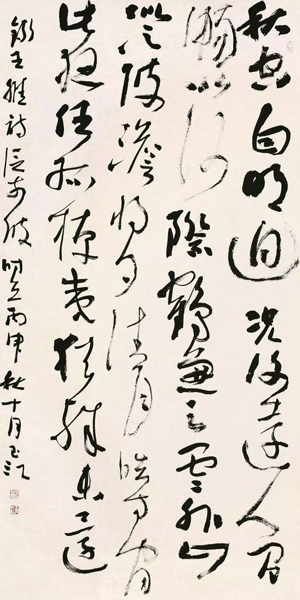 秋空自明迥況復遠人間
暢以沙際鶴兼之雲外山
澄波澹將夕清月皓方閒
此夜任孤棹夷猶殊未還
錄王維詩泛前陂時在丙申秋十月